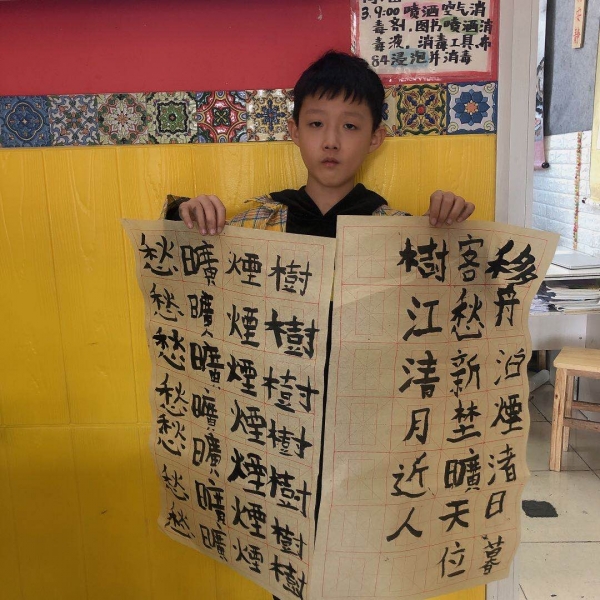 3. 9:00喷洒空气消
毒剂,图书喷洒消
毒液,消毒工具布
84浸泡并消毒
移舟泊煙渚日暮
客愁新埜曠天位
樹江清月近人
樹樹樹樹樹樹樹
煙煙煙煙煙煙煙
曠曠曠曠曠曠曠
愁愁愁愁愁愁愁